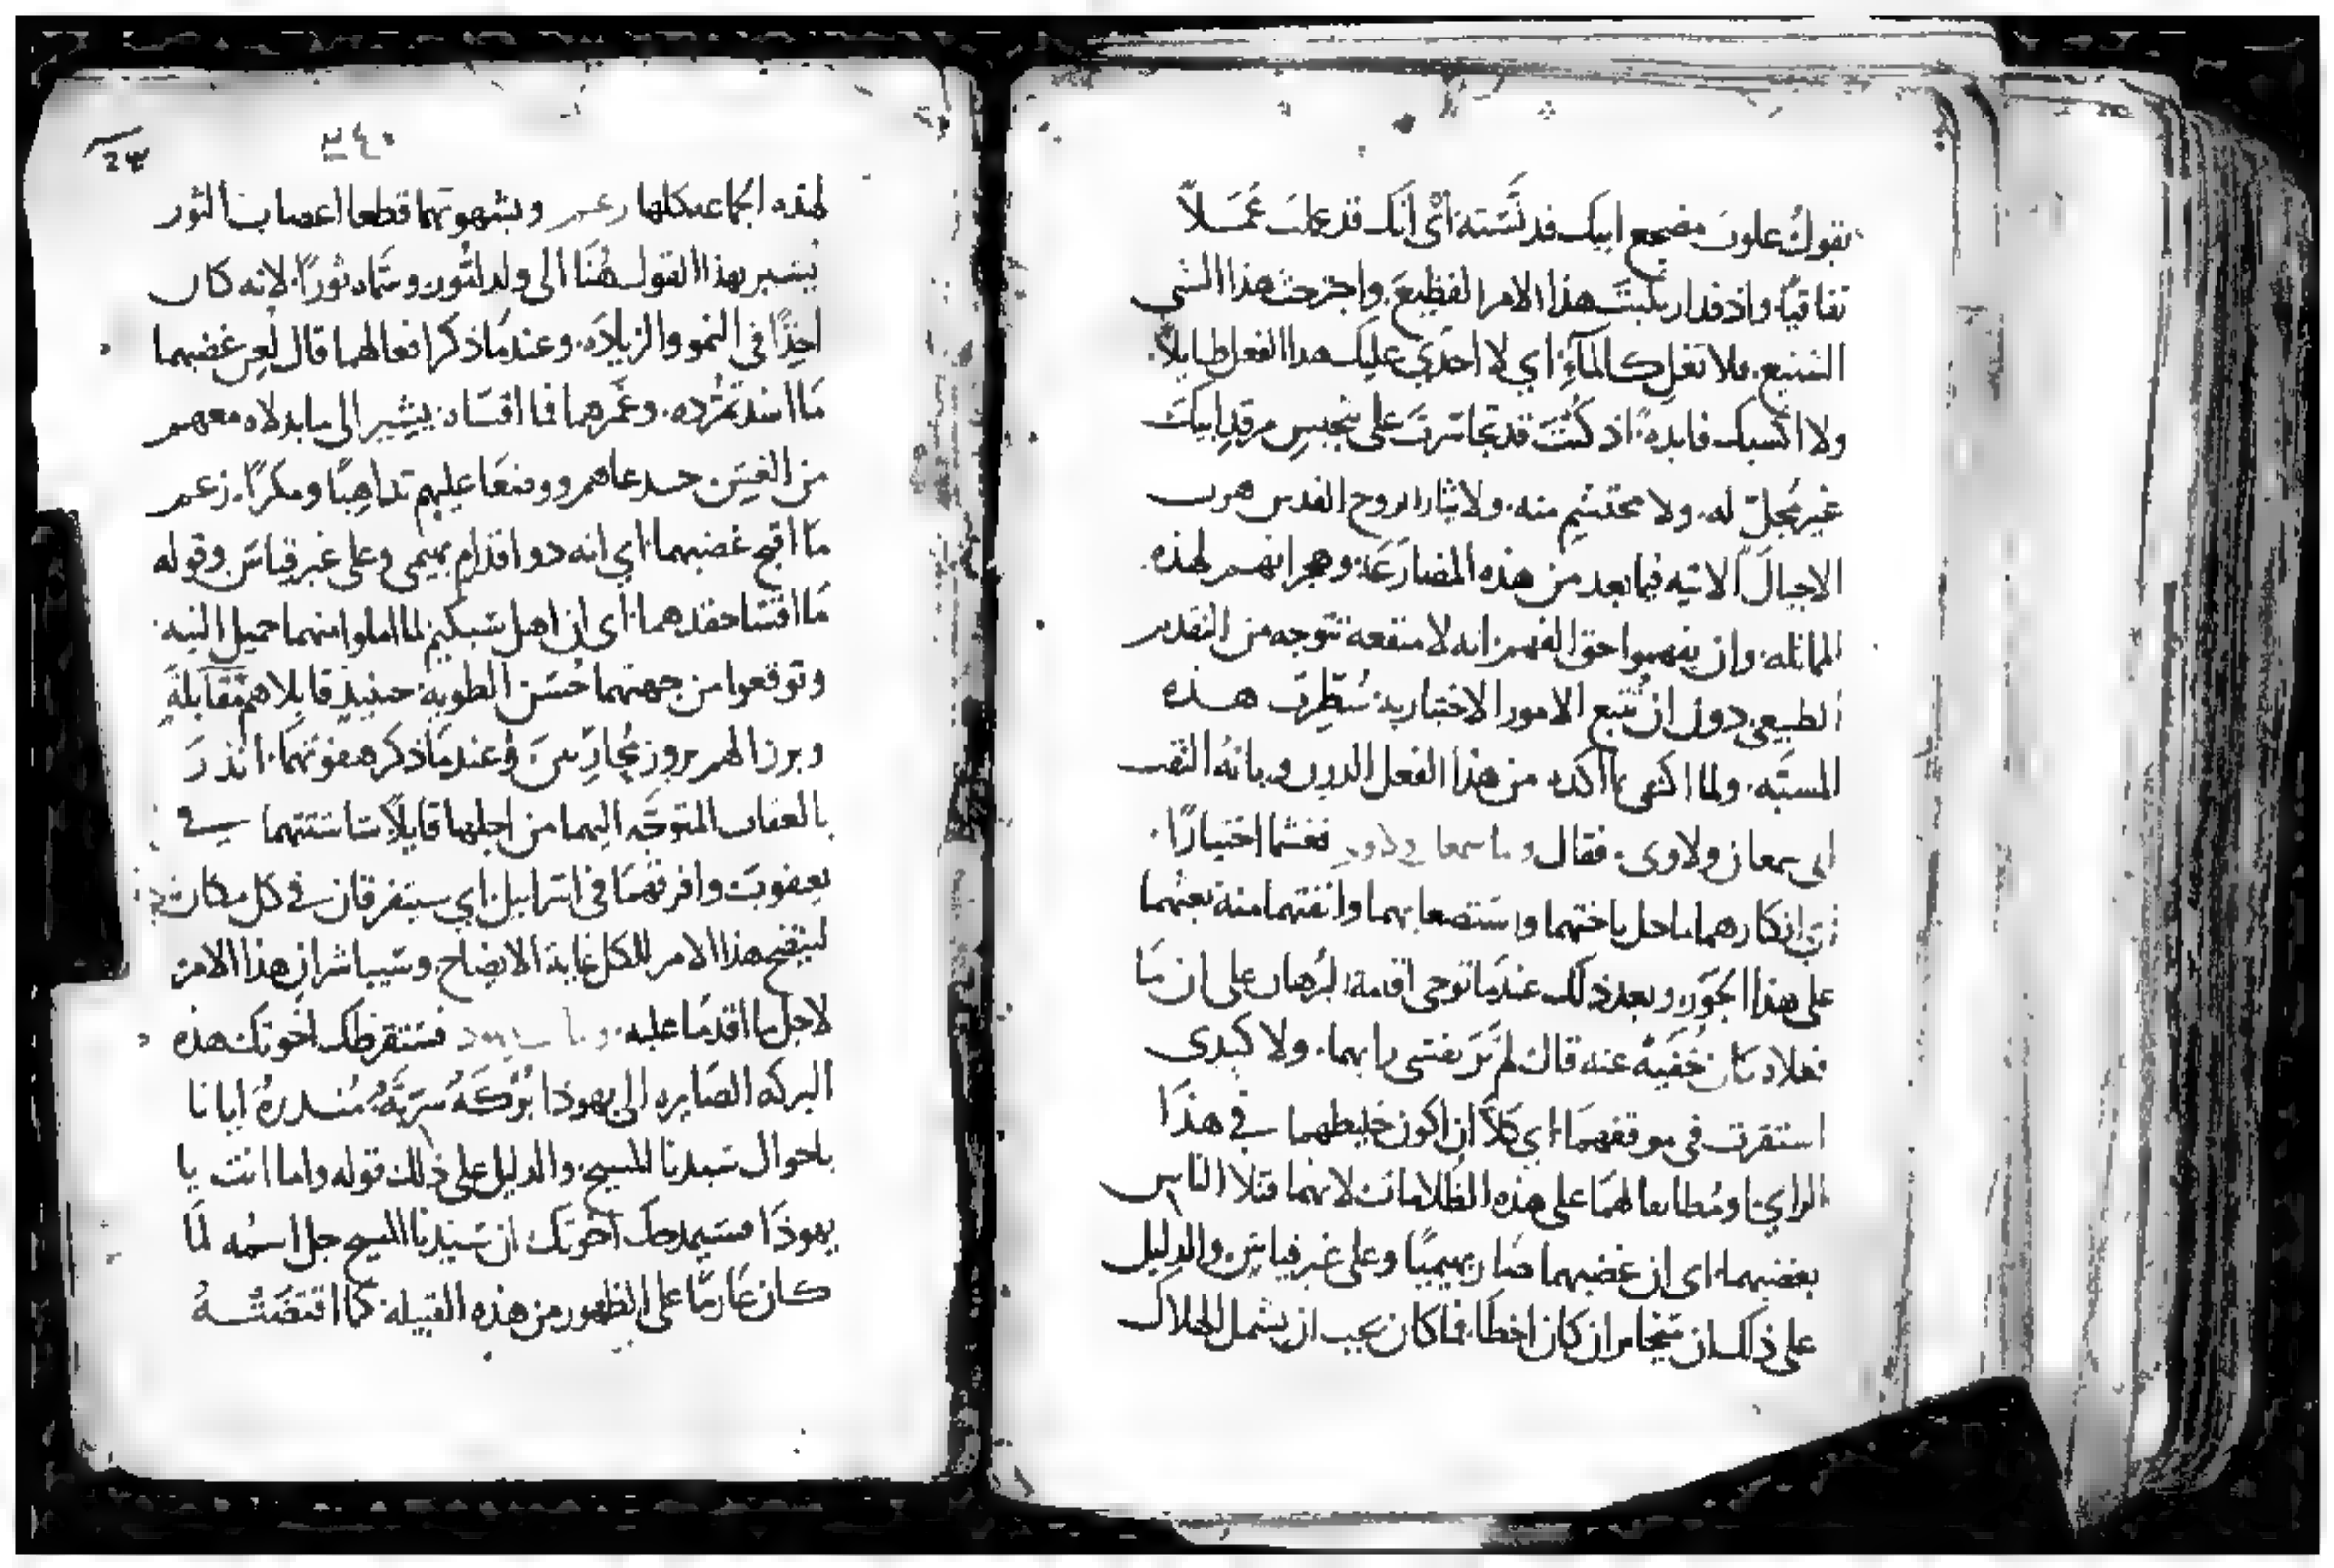 بقولك علوت مضجع ابيك فدنسته اي انك قد عملت عملاً
نفاقيًا واذ قد ارتكبت هذا الامر الفظيع. واجترحت هذا الشي
الشنيع. فلا تغل كالمآء: اي لا احدي عليك هدا الفعل طايلاً.
ولا اكسبك فايده: اذ كنت قد تجاسرت على تنجيس مرقد ابيك
غير مجلّ له. ولا محتشم منه. ولايثار الروح القدس هرب
الاجيال الاتيه فيما بعد من هذه المضارعة: وهجرانهم لهذه
المماثله: وان يفهموا حق الفهم انه لا منفعه تتوجه من التقدم
الطبيعي دون ان تتبع الامور الاختياريه: سُطِّرت هذه
المسبّه. ولما اكتفى بما اكده من هذا الفعل الدون وبيانه التفت
الى سمعان ولاوى. فقال فغشما اختيارًا.
اي انكارهما ما حل باختهما واستصعابهما وانفتهما منه بعثهما
على هذا الجور. وبعد ذلك عندما توخى اقامة البرهان على ان ما
فعلاه كان خفيه عنه قال لم تر نفسي رايهما. ولا كبدى
استقرت في موقفهما: اي كلا ان اكون خليطهما في هذا
الراي: او مطابقا لهما على هذه الظلامات لانهما قتلا الناس
بغضبهما. اى ان غضبهما صار بهيميًا وعلى غير قياس. والدليل
على ذلك ان شخام ان كان اخطا. فما كان يجب ان يشمل الهلاك
٣٤٠
لهذه الجماعه كلها زعم وبشهوتهما قطعا اعصاب الثور
يشير بهذا القول هُنَا الى ولد لثور. وسمّاه ثورًا. لانه كان
اخذًا في النمو والزياده. وعندما ذكر افعالهما قال لُعن غضبهما
ما اشد تمرّده. وغمرهما فما اقساه: يشير الى ما بدلاه معهم
من الغش حـد عاهم ووضعا عليهم تداهيًا ومكرًا. زعم
ما اقبح غضبهما: اي انه ذو اقدام بهيمي وعلى غير قياس وقوله
ما اقسا حقدهما: اي ان اهل شيكيم لما املوا منهما جميل النيه
وتوقعوا من جهتهما حُسن الطويه: حينيذٍ قابلاهم مقابلة
وبرزا لهم بروز مُحاربين وعندما ذكر هفوتهما. انذر
بالعقاب المتوجّه اليهما من اجلها قايلاً ساشتتهما في
يعقوب وافرقهما في اسراييل: اي سيتفرقان في كل مكان
ليتضح هذا الامر للكل غاية الايضاح. وسيباشران هذا الامر
لاجل ما اقدما عليه. فستقرظك اخوتك هذه
البركه الصايره الى يهوذا بُركَةُ سَريّةُ. مُنذرةُ ايانا
باحوال سيدنا المسيح. والدليل على ذلك قوله واما انت يا
يهوذا فسيمدحك اخوتك ان سيدنا المسيح جل اسمه لما
كان عازمًا على الظهور من هذه القبيله: كما اقتضته